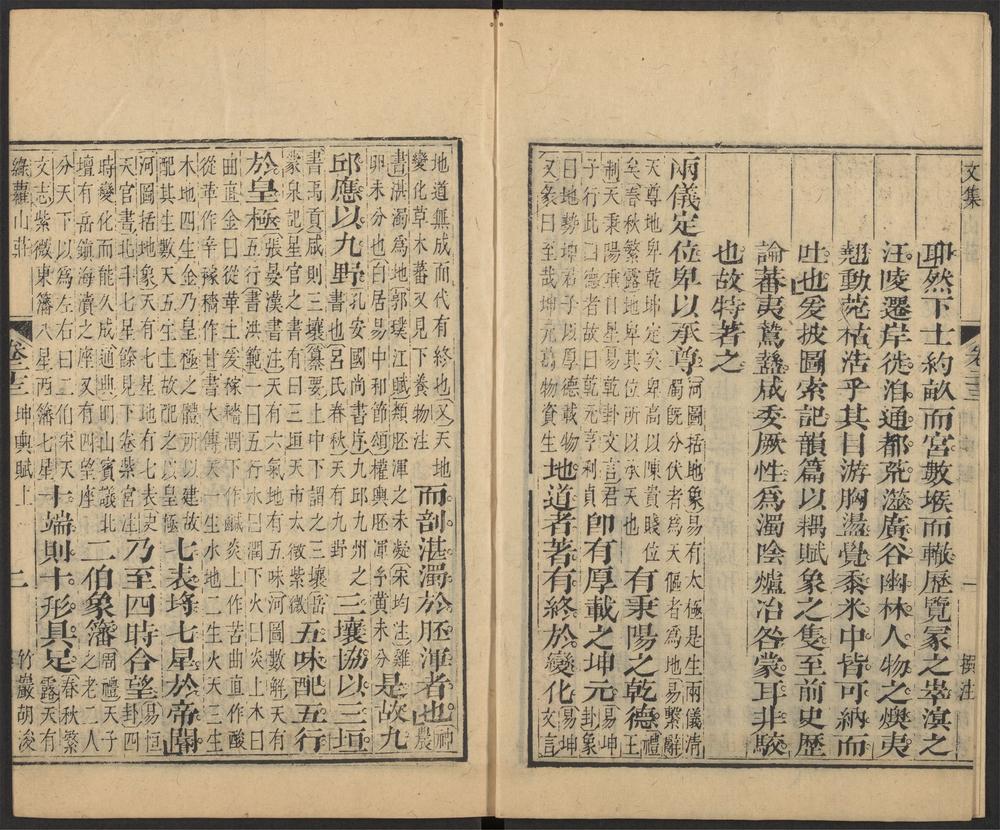 文集 卷三 一 撰注
聊然下士約畝而宮數堠而轍歷覽冢之崒溟之
汪陵遷岸徙洎通都巟滋廣谷幽林人物之燠夷
翹動菀枯浩乎其目游胸盪覺黍米中皆可納而
吐也爰披圖索記韻篇以耦賦象之隻至前史歷
論蕃夷騺盭咸委厥性爲濁陰爐冶咎蒙耳非駮
也故特著之
兩儀定位卑以承尊河圖括地象易有太極是生兩儀清濁既分伏者爲天偃者爲地易繫辭
天尊地卑乾坤定矣卑高以陳貴賤位矣春秋繁露地卑其位所以承天也有秉陽之乾德禮王
制天秉陽垂日星易乾卦文言君子行此四德者故曰乾元亨利貞即有厚載之坤元易坤卦象
曰地勢坤君子以厚德載物易坤又彖曰至哉坤元萬物資生地道者著有終於變化易坤文言
地道無成而代有終也又天地變化草木蕃又見下養物注而剖湛濁於胚渾者也神農
書湛濁爲地郭璞江賦類胚渾之未凝宋均注雞卵未分也白居易中和節頌權輿胚渾兮黃未分是故九
邱應以九野孔安國尚書序九邱九州之書也呂氏春秋天有九野三壤協以三垣
書禹貢咸則三壤纂要上中下謂之三壤岳彖泉記星官之書有曰三垣天市太微紫微五味配五行
於皇極張晏漢書注天有六氣地有五味河圖數解天有五行書洪範一曰五行水曰潤下火曰炎上木曰
曲直金曰從革土爰稼穡潤下作鹹炎上作苦曲直作酸從革作辛稼穡作甘書大傳天一生水地二生火天三生
木地四生金乃皇極之體所以建故配其生數天五生土故配之以皇極七表埒七星於帝闓
河圖括地象天有七星地有七表史天官書北斗七星餘見下卷紫宮注乃至四時合望易恒卦四
時變化而能久成通典明山賓議北壇有岳鎮海瀆之座又有四望座二伯象藩周禮天子之老二人
分天下以爲左右曰二伯宋天文志紫微東藩八星西藩七星十端則十形具足春秋繁露天有
綠蘿山莊 卷三 坤輿賦上 二 竹巖胡浚